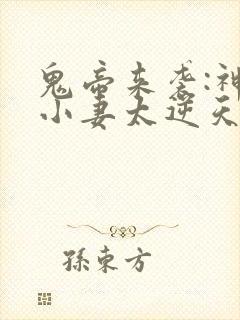 鬼帝来袭:神
小妻太逆天
孫東方